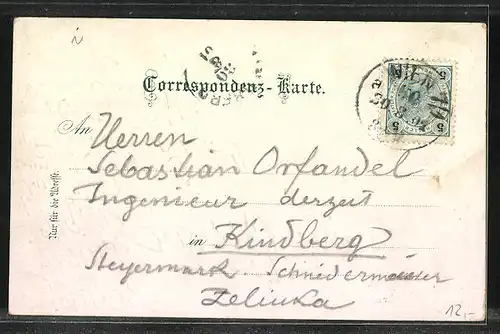 Correspondenz-Karte.
WIEN
5 5
5 5
An Herrn
Sebastian Orfandel
Ingenieur derzeit
in Kindberg
Steyermark. Schniedermeister
Zelinka
Nur für die Adresse.
12,-